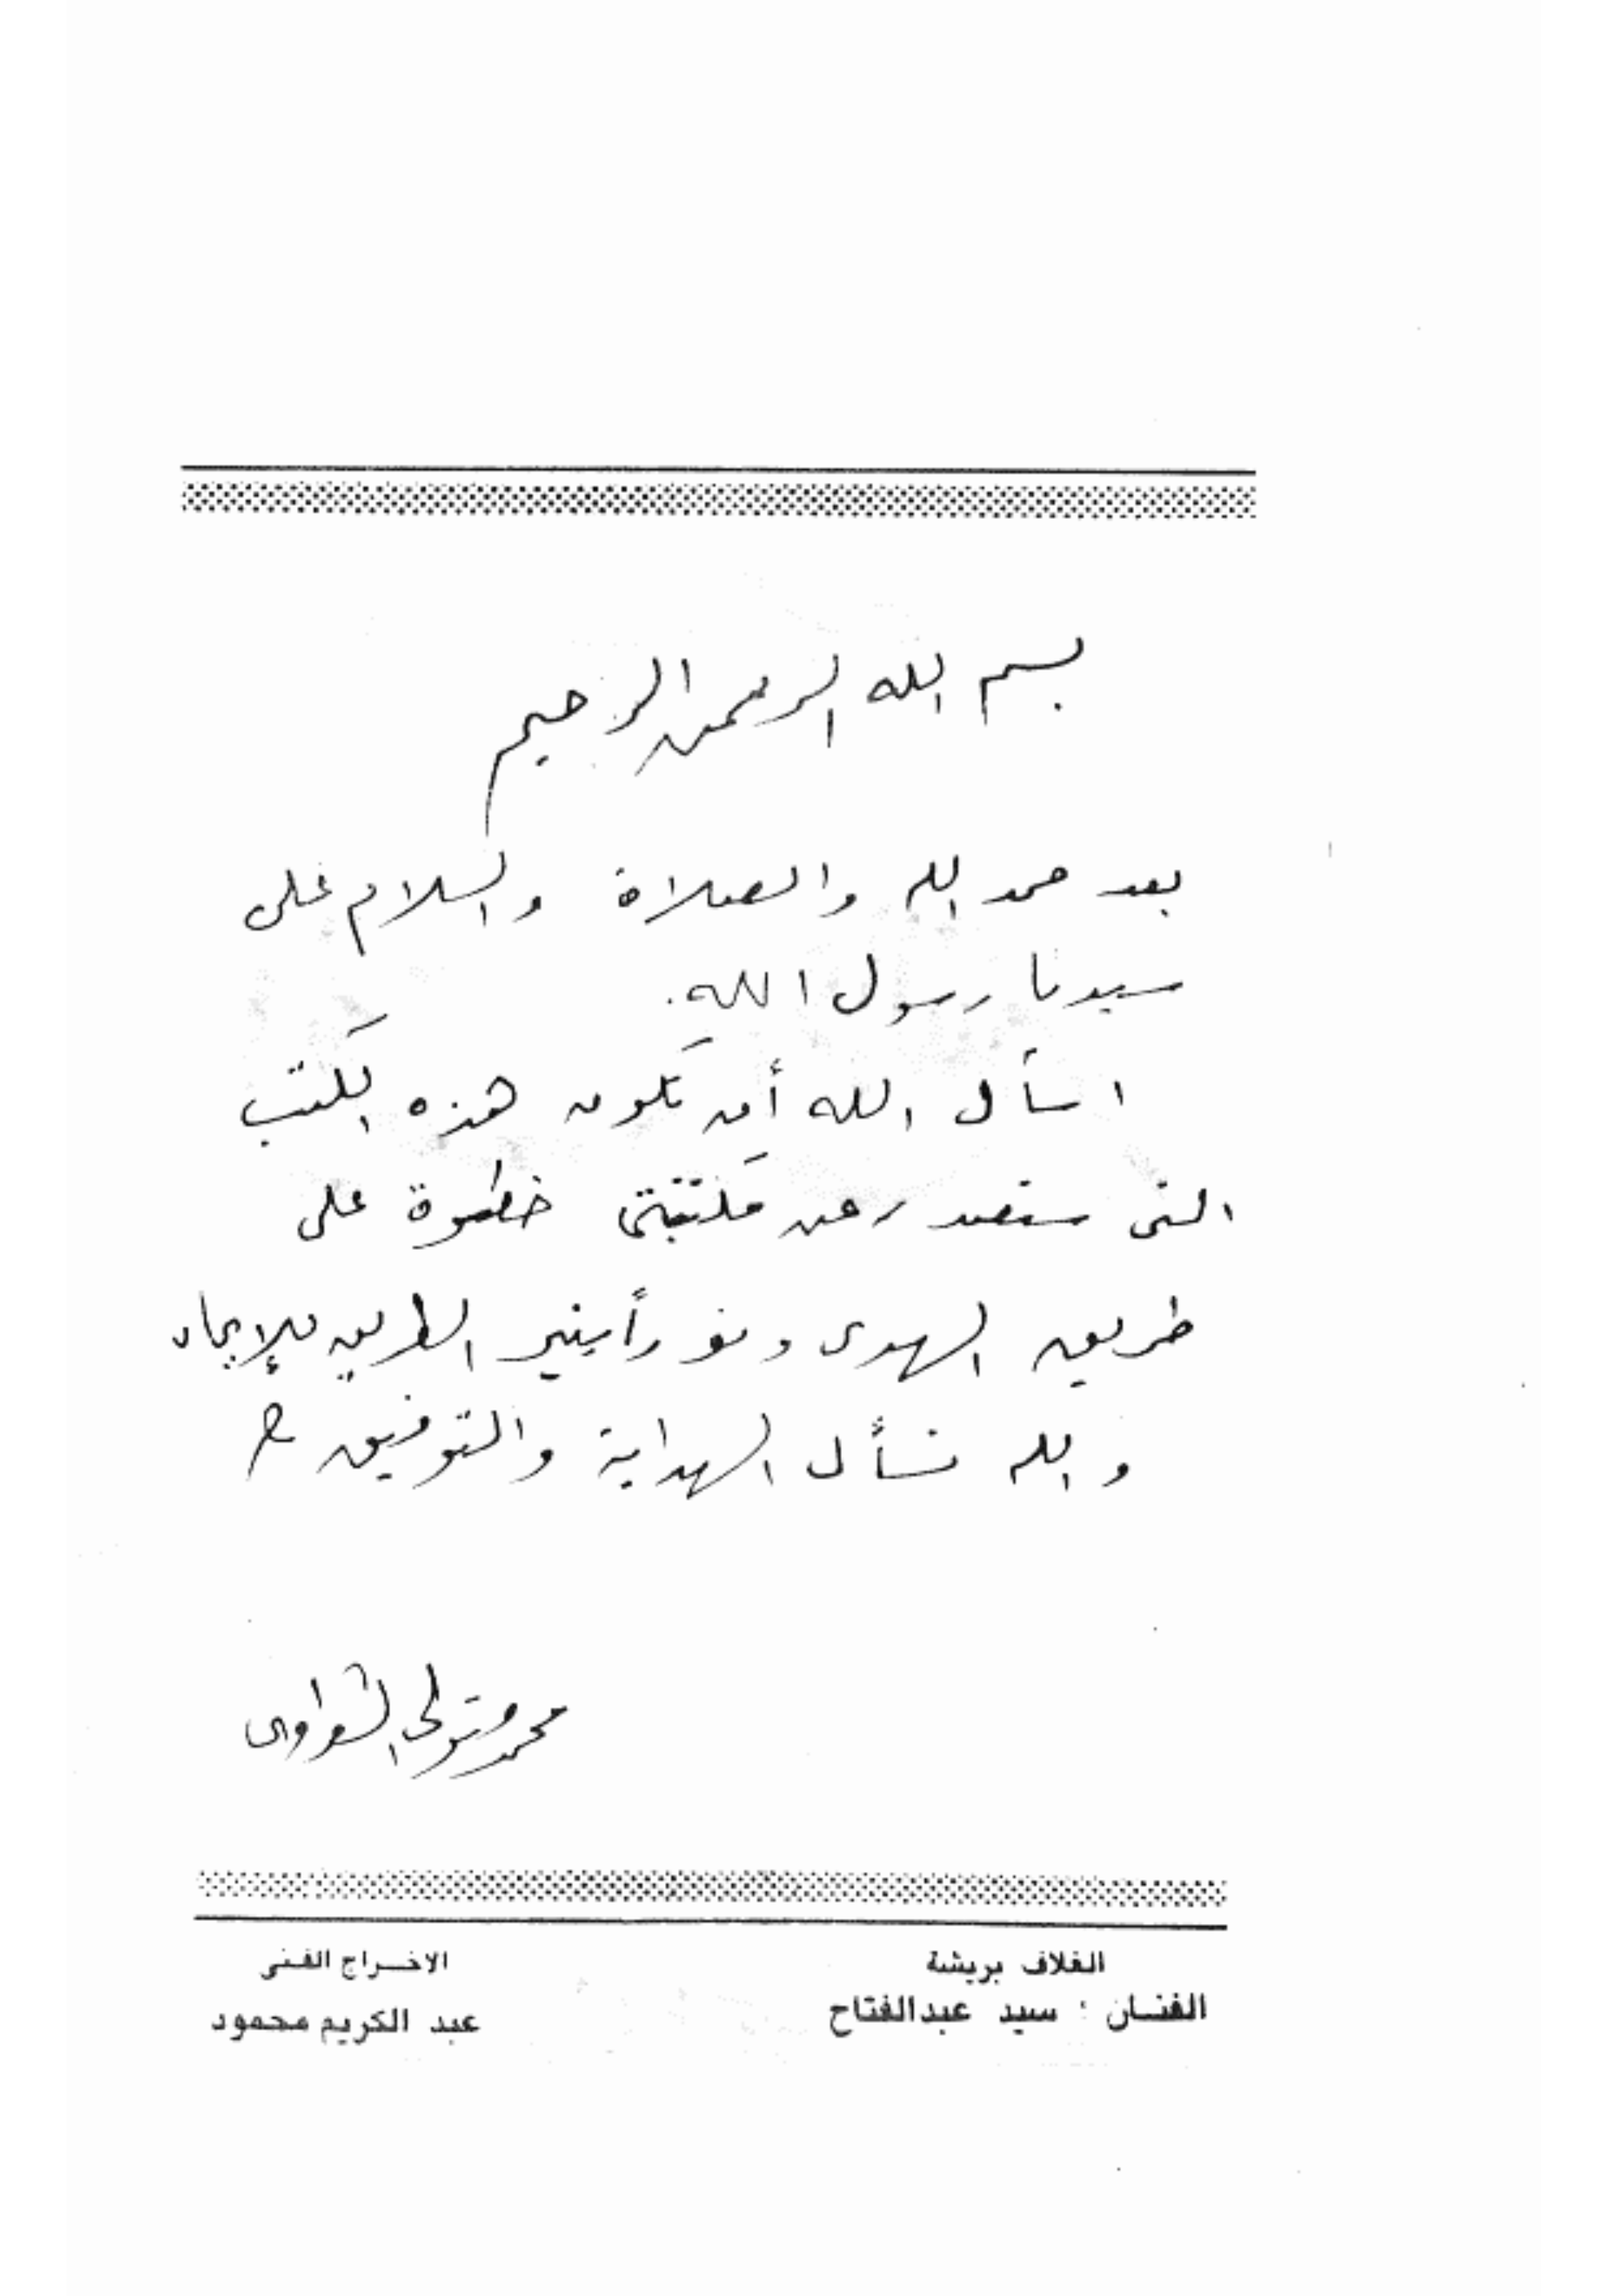 بسم الله الرحمن الرحيم
بعد حمد الله والصلاة والسلام على
سيدنا رسول الله.
اسأل الله أن تكون هذه الكتب
التى ستصدر عن مكتبتى خطوة على
طريق الهدى ونورأينير الطريق للإيمان
والله نسأل الهداية والتوفيق
محمد متولى الشعراوى
الغلاف بريشة
الفنان : سيد عبدالفتاح
الاخراج الفنى
عبد الكريم محمود